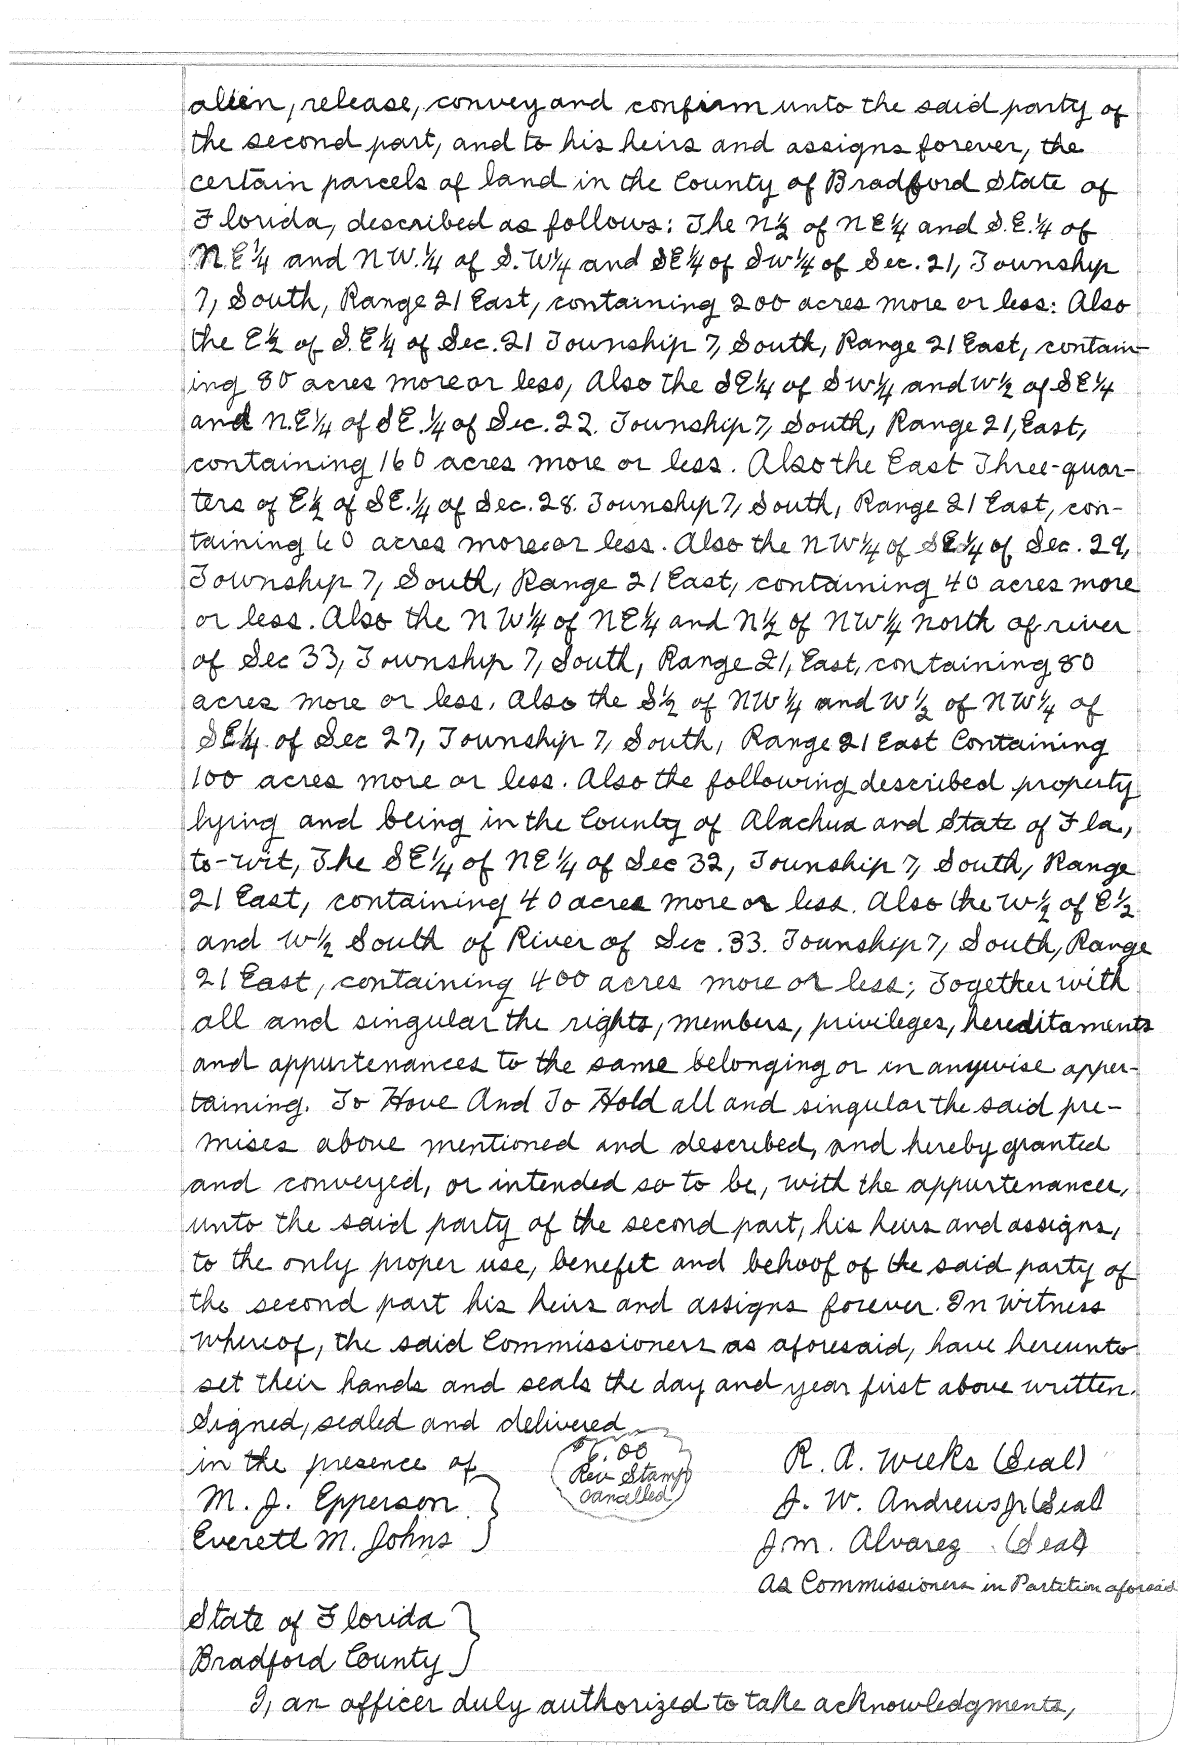 alien, release, convey and confirm unto the said party of
the second part, and to his heirs and assigns forever, the
certain parcels of land in the County of Bradford State of
Florida, described as follows: The N½ of NE¼ and S.E.¼ of
N.E¼ and NW.¼ of S.W¼ and SE¼ of SW¼ of Sec. 21, Township
7, South, Range 21 East, containing 200 acres more or less: Also
the E½ of S.E¼ of Sec. 21 Township 7, South, Range 21 East, contain-
ing 80 acres more or less, Also the SE¼ of SW¼ and W½ of SE¼
and N.E¼ of SE.¼ of Sec. 22. Township 7, South, Range 21, East,
containing 160 acres more or less. Also the East Three-quar-
ters of E½ of SE.¼ of Sec. 28. Township 7, South, Range 21 East, con-
taining 60 acres more or less. Also the NW¼ of SE¼ of Sec. 29,
Township 7, South, Range 21 East, containing 40 acres more
or less. Also the NW¼ of NE¼ and N½ of NW¼ north of river
of Sec 33, Township 7, South, Range 21, East, containing 80
acres more or less, Also the S½ of NW¼ and W½ of NW¼ of
SE¼ of Sec 27, Township 7, South, Range 21 East Containing
100 acres more or less. Also the following described property
lying and being in the County of Alachua and State of Fla.,
to-wit, The SE¼ of NE¼ of Sec 32, Township 7, South, Range
21 East, containing 40 acres more or less. Also the W½ of E½
and W½ South of River of Sec. 33. Township 7, South, Range
21 East, containing 400 acres more or less; Together with
all and singular the rights, members, privileges, hereditaments
and appurtenances to the same belonging or in anywise apper-
taining. To Have And To Hold all and singular the said pre-
mises above mentioned and described, and hereby granted
and conveyed, or intended so to be, with the appurtenances,
unto the said party of the second part, his heirs and assigns,
to the only proper use, benefit and behoof of the said party of
the second part his heirs and assigns forever. In Witness
Whereof, the said Commissioners as aforesaid, have hereunto
set their hands and seals the day and year first above written.
Signed, sealed and delivered
in the presence of
M. J. Epperson
Everett M. Johns
$6.00
Rev Stamp
Cancelled
R. A. Weeks (Seal)
J. W. Andrews Jr (Seal
J.M. Alvarez (Seal)
As Commissioners in Partition aforesaid
State of Florida
Bradford County
I, an officer duly authorized to take acknowledgments,